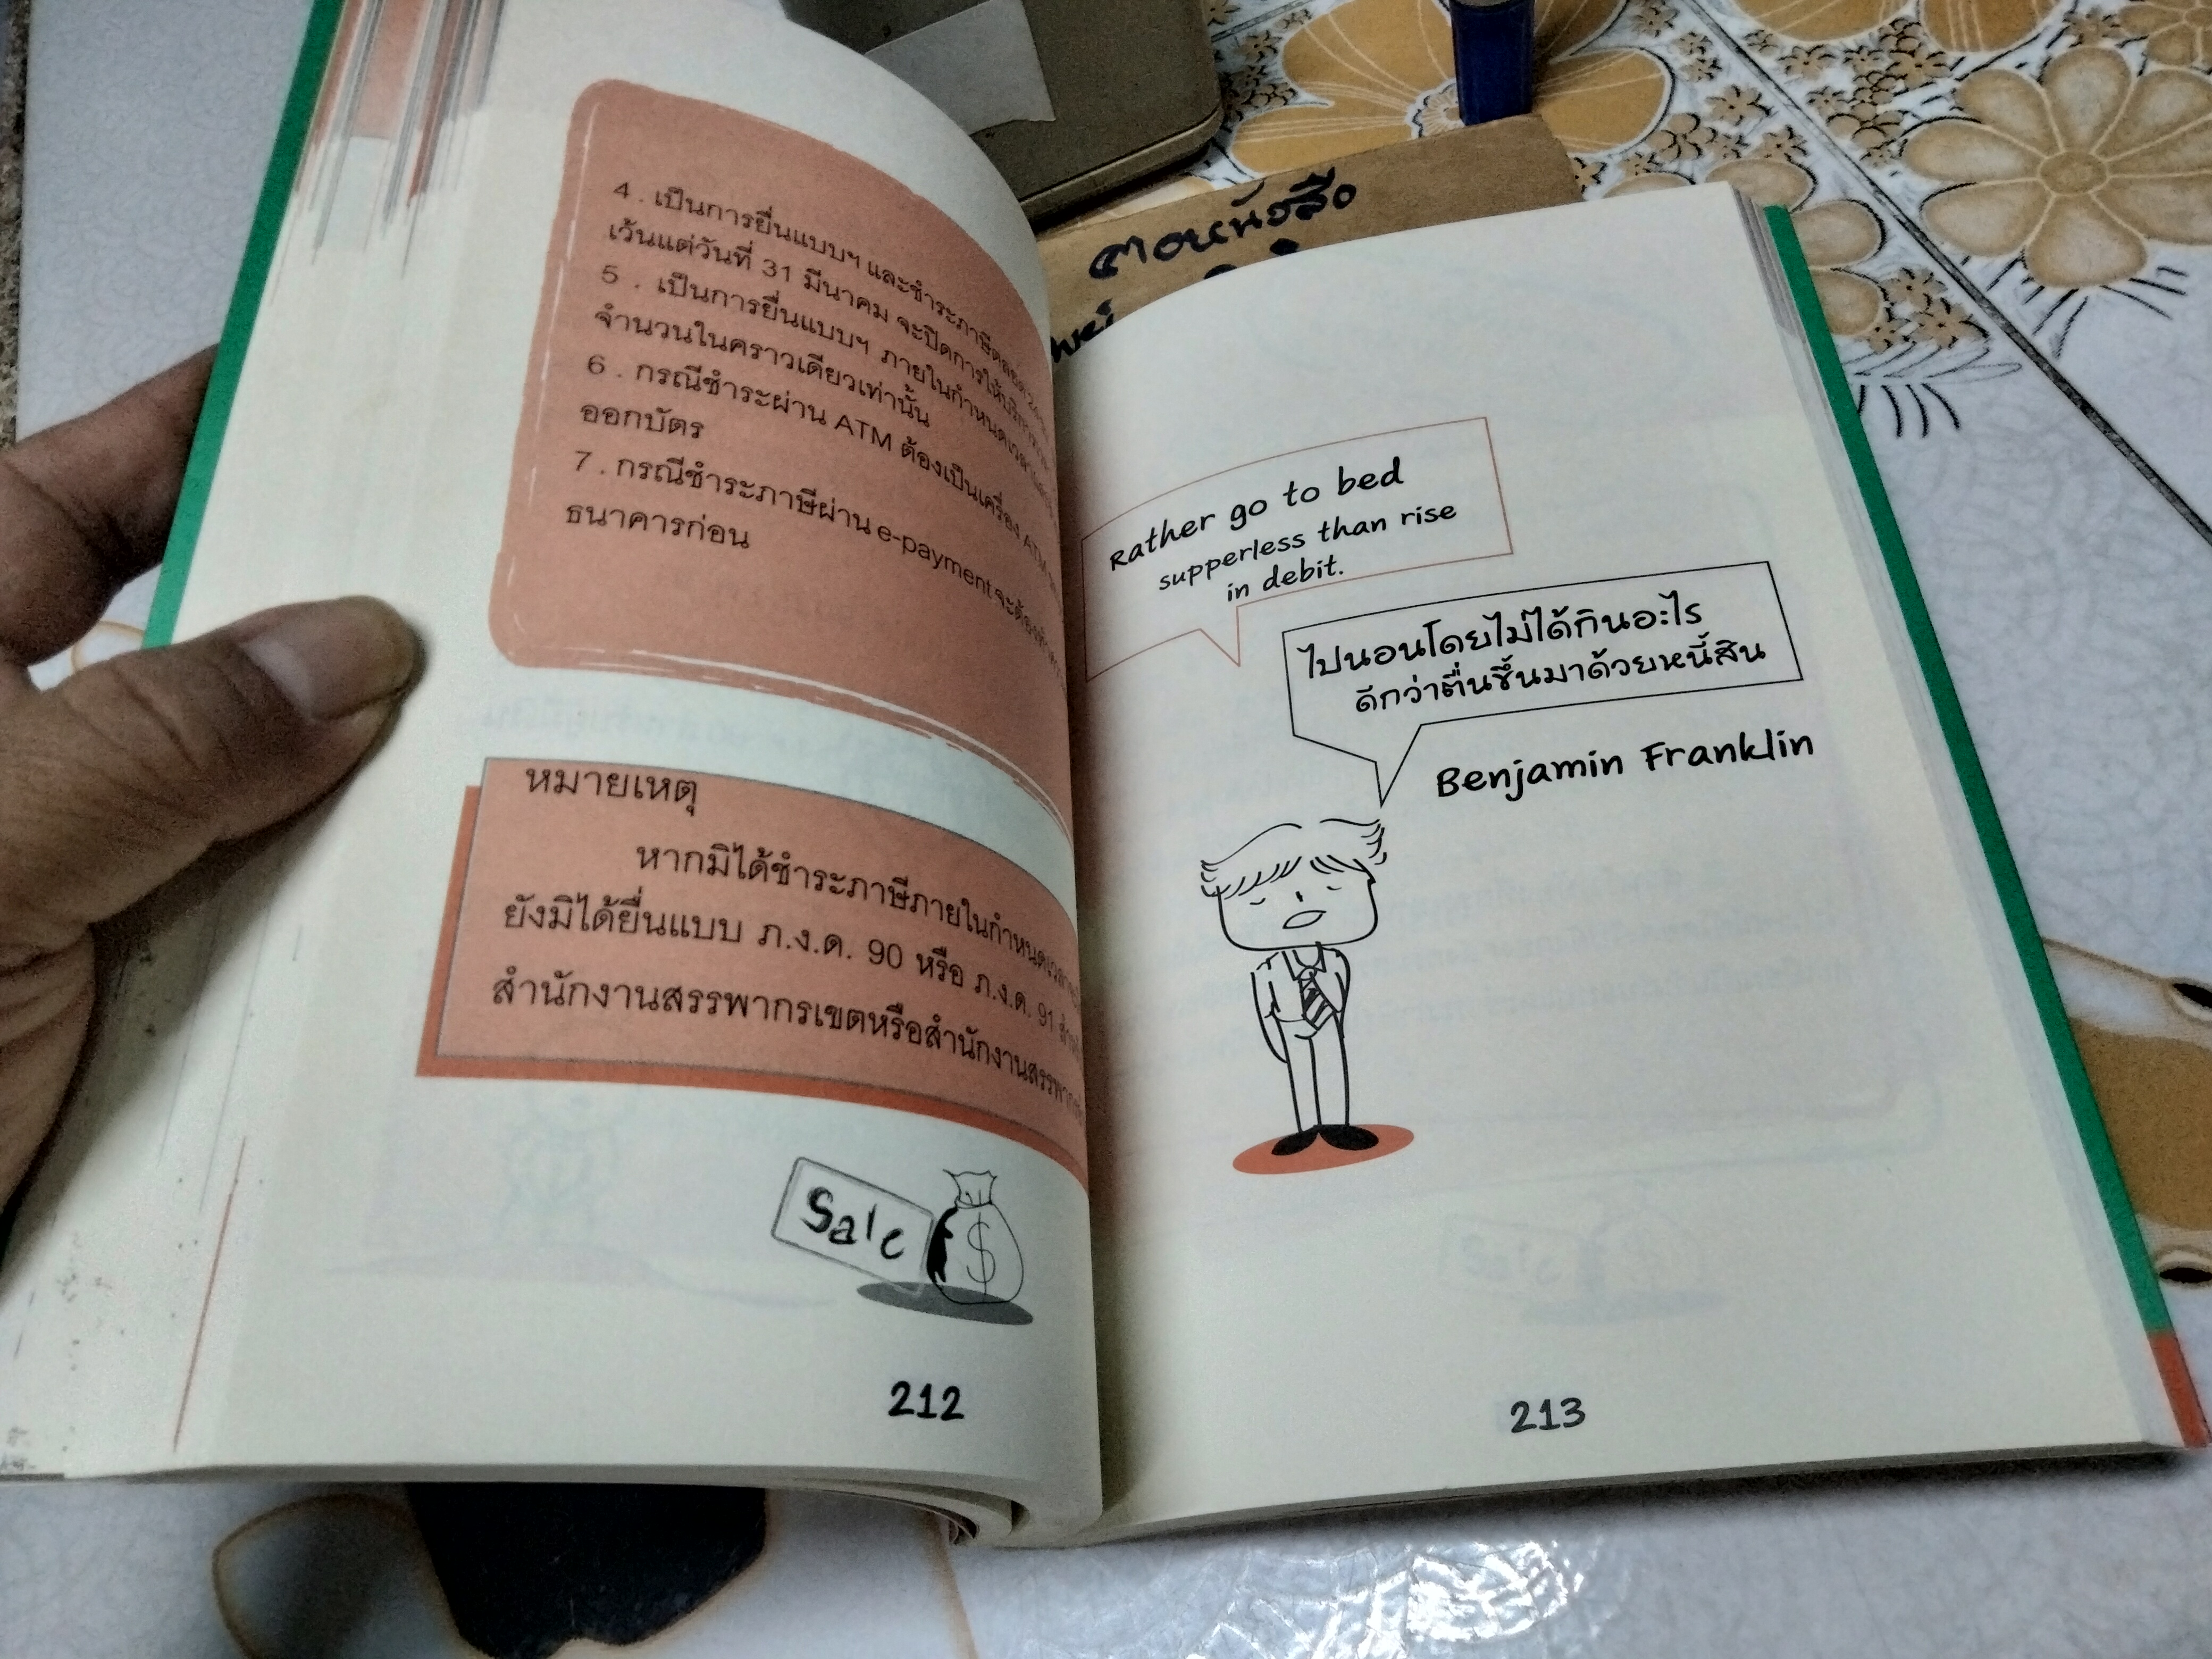 4 . เป็นการยื่นแบบฯ และชำระภาษีตลอด 24
เว้นแต่วันที่ 31 มีนาคม จะปิดการให้บริการ
5 . เป็นการยื่นแบบฯ ภายในกำหนดเวลา
จำนวนในคราวเดียวเท่านั้น
6 . กรณีชำระผ่าน ATM ต้องเป็นเครื่อง ATM
ออกบัตร
7 . กรณีชำระภาษีผ่าน e-payment จะต้อง
ธนาคารก่อน
หมายเหตุ
หากมิได้ชำระภาษีภายในกำหนดเวลา
ยังมิได้ยื่นแบบ ภ.ง.ด. 90 หรือ ภ.ง.ด. 91
สำนักงานสรรพากรเขตหรือสำนักงานสรรพากร
Sale
$
212
Rather go to bed
supperless than rise
in debit.
ไปนอนโดยไม่ได้กินอะไร
ดีกว่าตื่นขึ้นมาด้วยหนี้สิน
Benjamin Franklin
213